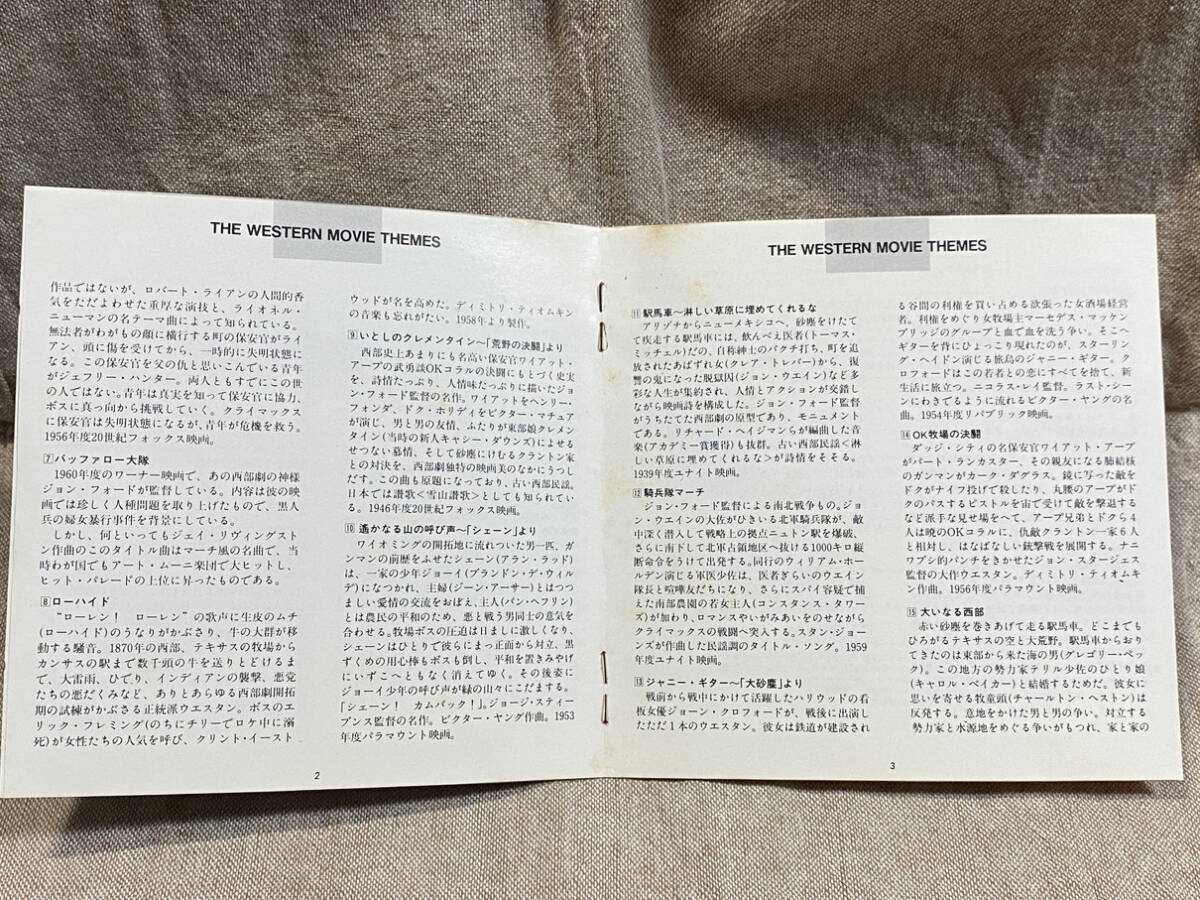 THE WESTERN MOVIE THEMES
作品ではないが、ロバート・ライアンの人間的香
気をただよわせた重厚な演技と、ライオネル・
ニューマンの名テーマ曲によって知られている。
無法者がわがもの顔に横行する町の保安官がライ
アン、頭に傷を受けてから、一時的に失明状態に
なる。この保安官を父の仇と思いこんでいる青年
がジェフリー・ハンター。両人ともすでにこの世
の人ではない。青年は真実を知って保安官に協力、
ボスに真っ向から挑戦していく。クライマックス
に保安官は失明状態になるが、青年が危機を救う。
1956年度20世紀フォックス映画。
7 バッファロー大隊
1960年度のワーナー映画で、あの西部劇の神様
ジョン・フォードが監督している。内容は彼の映
画では珍しく人種問題を取り上げたもので、黒人
兵の婦女暴行事件を背景にしている。
しかし、何といってもジェイ・リヴィングスト
ン作曲のこのタイトル曲はマーチ風の名曲で、当
時わが国でもアート・ムーニ楽団で大ヒットし、
ヒット・パレードの上位に昇ったものである。
8 ローハイド
“ローレン! ローレン”の歌声に生皮のムチ
(ローハイド)のうなりがかぶさり、牛の大群が移
動する騒音。1870年の西部、テキサスの牧場から
カンサスの駅まで数千頭の牛を送りとどけるま
で、大雷雨、ひでり、インディアンの襲撃、悪党
たちの悪だくみなど、ありとあらゆる西部劇開拓
期の試練がかぶさる正統派ウエスタン。ボスのエ
リック・フレミング(のちにチリーでロケ中に溺
死)が女性たちの人気を呼び、クリント・イースト
ウッドが名を高めた。ディミトリ・ティオムキン
の音楽も忘れがたい。1958年より製作。
9 いとしのクレメンタイン〜「荒野の決闘」より
西部史上あまりにも名高い保安官ワイアット・
アープの武勇談OKコラルの決闘にもとづく史実
を、詩情たっぷり、人情味たっぷりに描いたジョ
ン・フォード監督の名作。ワイアットをヘンリー・
フォンダ、ドク・ホリディをビクター・マチュア
が演じ、男と男の友情、ふたりが東部娘クレメン
タイン(当時の新人キャシー・ダウンズ)によせる
せつない慕情、そして砂塵にけむるクラントン家
との対決を、西部劇独特の映画美のなかにうつし
だす。この曲も原題になっており、古い西部民謡。
日本では讃歌<雪山讃歌>としても知られてい
る。1946年度20世紀フォックス映画。
10 遥かなる山の呼び声〜「シェーン」より
ワイオミングの開拓地に流れついた男一匹、ガ
ンマンの前歴をふせたシェーン(アラン・ラッド)
は、一家の少年ジョーイ(ブランドン・デ・ウィル
デ)になつかれ、主婦(ジーン・アーサー)とはつつ
ましい愛情の交流をおぼえ、主人(バン・ヘフリン)
とは農民の平和のため、悪と戦う男同士の意気を
合わせる。牧場ボスの圧迫は日ましに激しくなり、
シェーンはひとりで彼らにまっ正面から対立、黒
ずくめの用心棒もボスも倒し、平和を置きみやげ
にいずこへともなく消えてゆく。その後姿に
ジョーイ少年の呼び声が緑の山々にこだまする。
「シェーン! カムバック!」。ジョージ・スティー
ブンス監督の名作。ビクター・ヤング作曲。1953
年度パラマウント映画。
2
THE WESTERN MOVIE THEMES
11 駅馬車〜淋しい草原に埋めてくれるな
アリゾナからニューメキシコへ、砂塵をけたて
て疾走する駅馬車には、飲んべえ医者(トーマス・
ミッチェル)だの、自称紳士のバクチ打ち、町を追
放されたあばずれ女(クレア・トレバー)から、復
讐の鬼になった脱獄囚(ジョン・ウエイン)など多
彩な人生が集約され、人情とアクションが交錯し
ながら映画詩を構成した。ジョン・フォード監督
がうちたてた西部劇の原型であり、モニュメント
である。リチャード・ヘイジマンらが編曲した音
楽(アカデミー賞獲得)も抜群。古い西部民謡<淋
しい草原に埋めてくれるな>が詩情をそそる。
1939年度ユナイト映画。
12 騎兵隊マーチ
ジョン・フォード監督による南北戦争もの。ジョ
ン・ウエインの大佐がひきいる北軍騎兵隊が、敵
中深く潜入して戦略上の拠点ニュートン駅を爆破、
さらに南下して北軍占領地区へ抜ける1000キロ縦
断命令をうけて出発する。同行のウィリアム・ホー
ルデン演じる軍医少佐は、医者ぎらいのウエイン
隊長と喧嘩友だちになり、さらにスパイ容疑で捕
えた南部農園の若女主人(コンスタンス・タワー
ズ)が加わり、ロマンスやいがみあいをのせながら
クライマックスの戦闘へ突入する。スタン・ジョー
ンズが作曲した民謡調のタイトル・ソング。1959
年度ユナイト映画。
13 ジャニー・ギター〜「大砂塵」より
戦前から戦中にかけて活躍したハリウッドの看
板女優ジョーン・クロフォードが、戦後に出演し
たただ1本のウエスタン。彼女は鉄道が建設され
る谷間の利権を買い占める欲張った女酒場経営
者。利権をめぐり女牧場主マーセデス・マッケン
ブリッジのグループと血で血を洗う争い。そこへ
ギターを背にひょっこり現れたのが、スターリン
グ・ヘイドン演じる旅鳥のジャニー・ギター。ク
ロフォードはこの若者との恋にすべてを捨て、新
生活に旅立つ。ニコラス・レイ監督。ラスト・シー
ンにわきでるように流れるビクター・ヤングの名
曲。1954年度リパブリック映画。
14 OK牧場の決闘
ダッジ・シティの名保安官ワイアット・アープ
がバート・ランカスター、その親友になる肺結核
のガンマンがカーク・ダグラス。鏡に写った敵を
ドクがナイフ投げで殺したり、丸腰のアープがド
クのパスするピストルを宙で受けて敵を撃退する
など派手な見せ場をへて、アープ兄弟とドクら4
人は暁のOKコラルに、仇敵クラントン一家6人
と相対し、はなばなしい銃撃戦を展開する。ナニ
ワブシ的パンチをきかせたジョン・スタージェス
監督の大作ウエスタン。ディミトリ・ティオムキ
ン作曲。1956年度パラマウント映画。
15 大いなる西部
赤い砂塵を巻きあげて走る駅馬車。どこまでも
ひろがるテキサスの空と大荒野。駅馬車からおり
てきたのは東部から来た海の男(グレゴリー・ペッ
ク)。この地方の勢力家テリル少佐のひとり娘
(キャロル・ベイカー)と結婚するためだ。彼女に
思いを寄せる牧童頭(チャールトン・ヘストン)は
反発する。意地をかけた男と男の争い。対立する
勢力家と水源地をめぐる争いがもつれ、家と家の
3